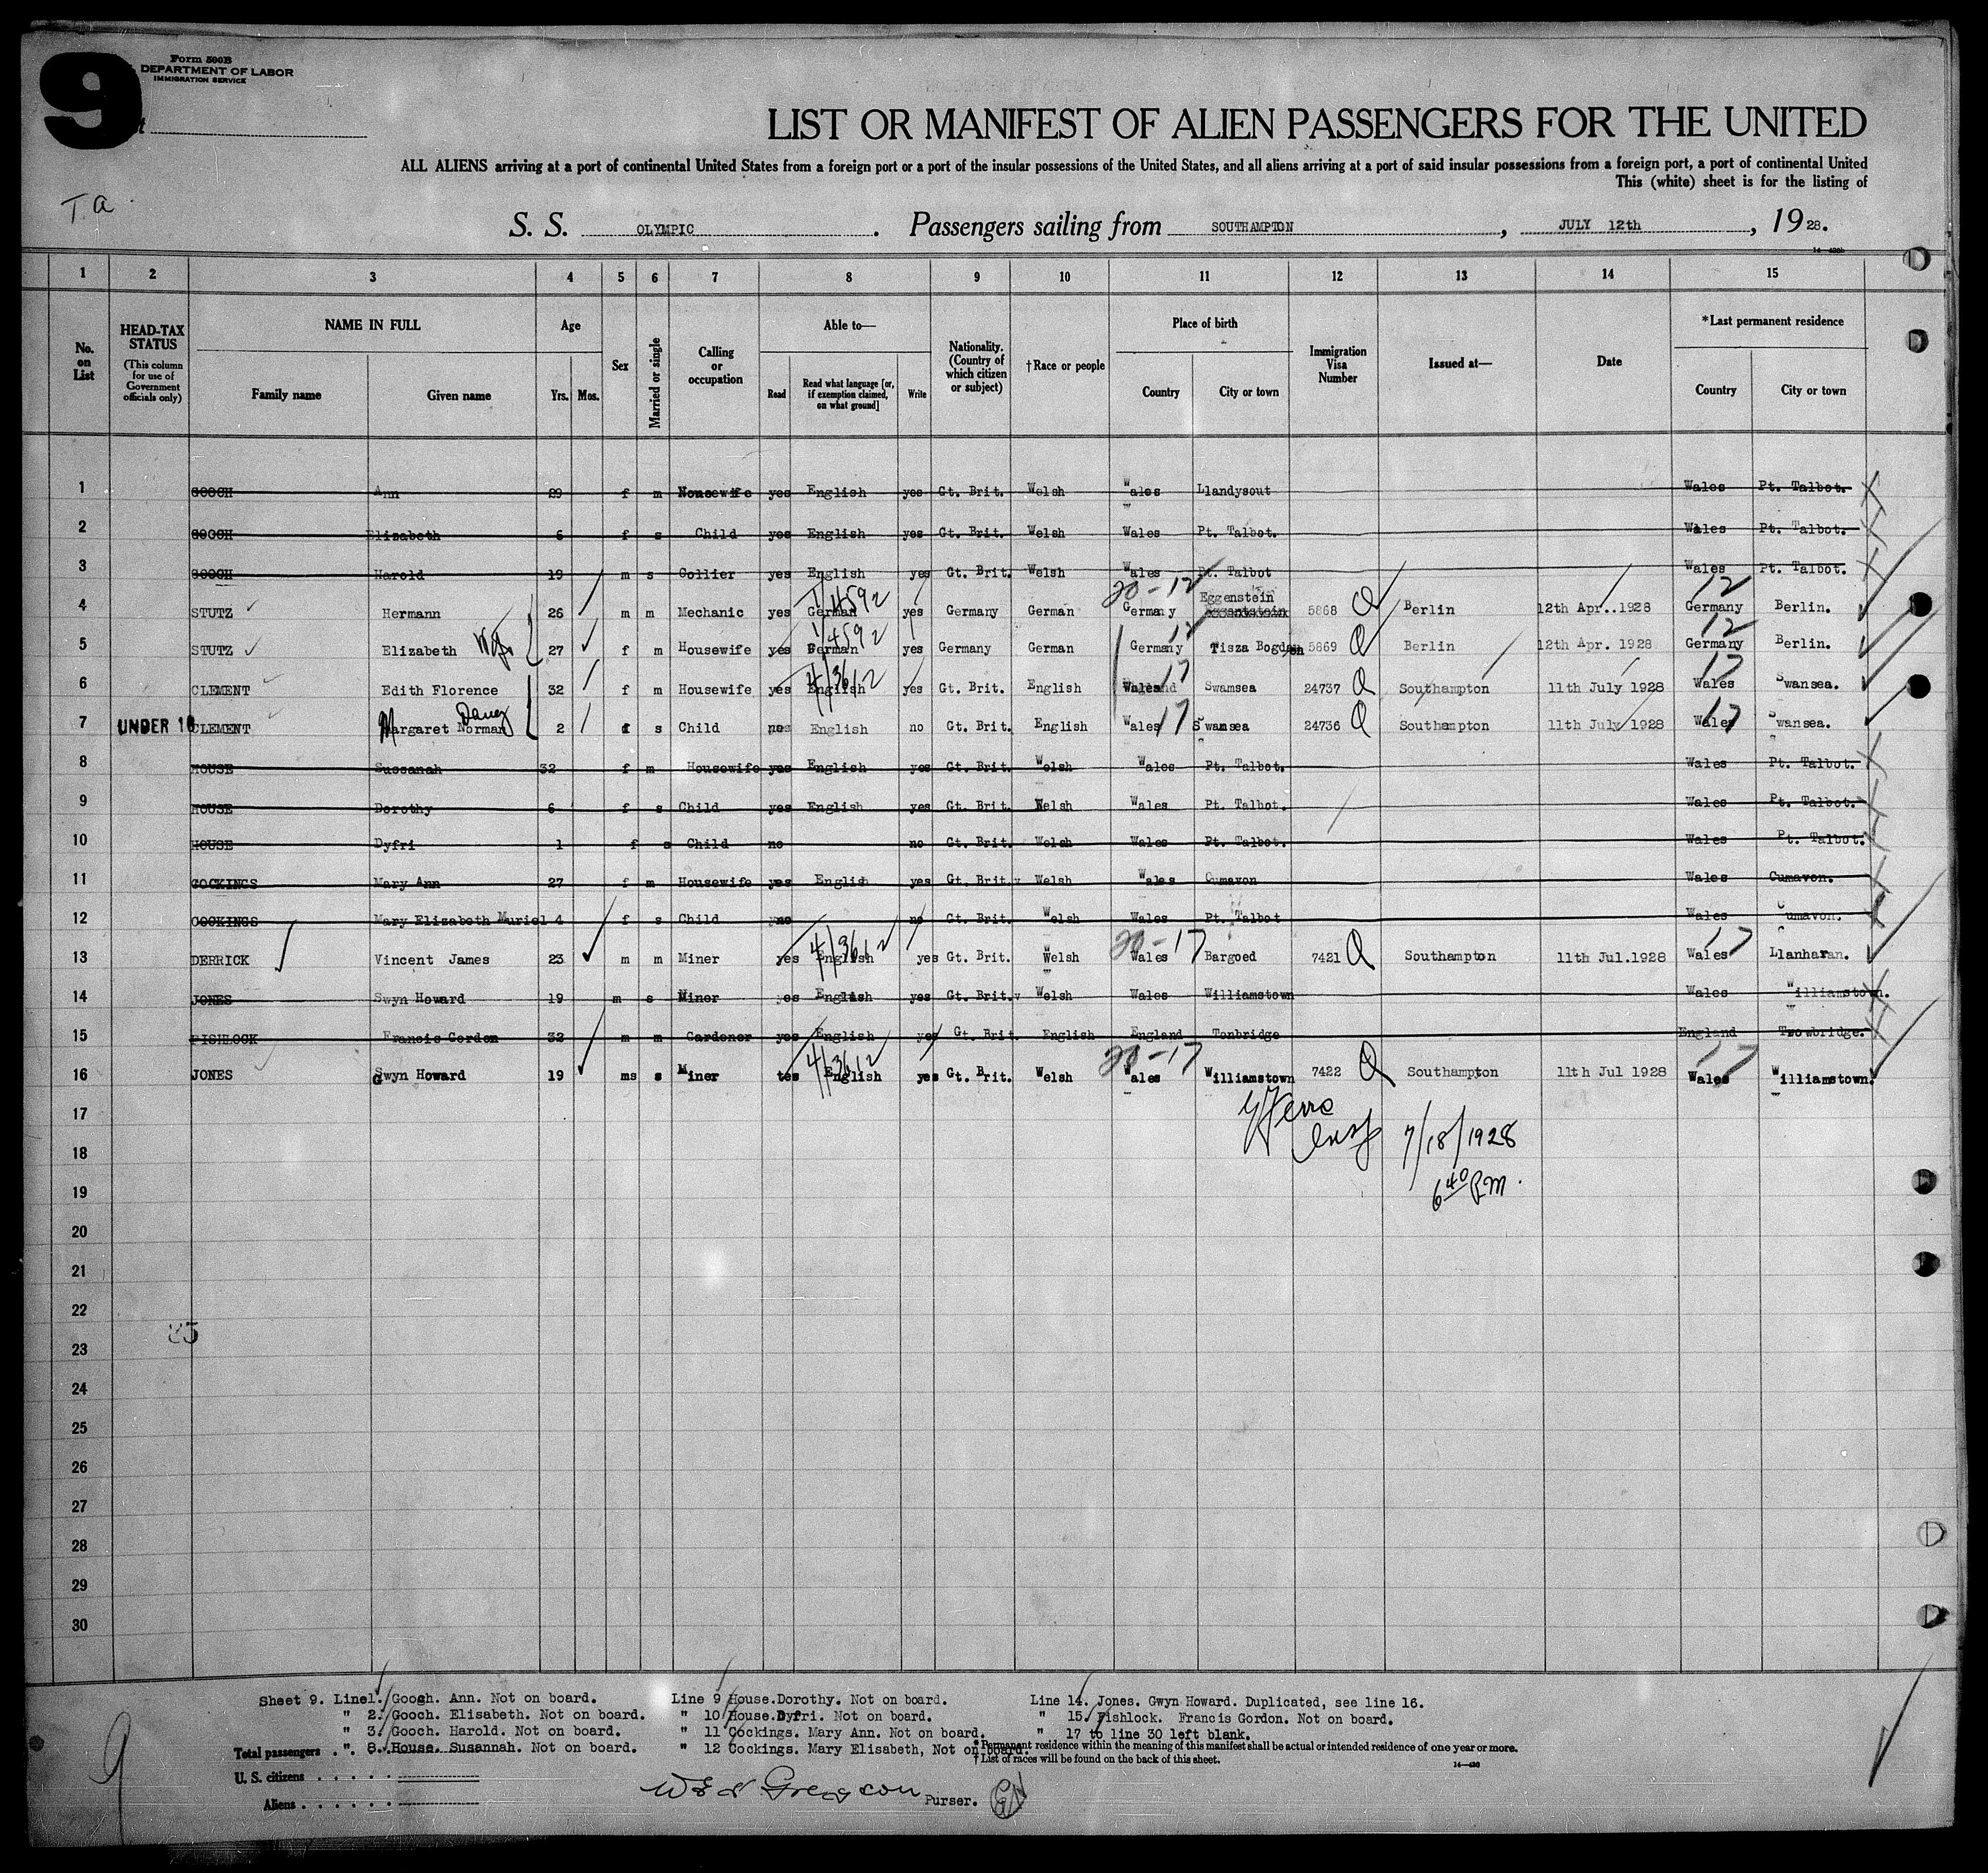 9
Form 500B
DEPARTMENT OF LABOR
IMMIGRATION SERVICE
LIST OR MANIFEST OF ALIEN PASSENGERS FOR THE UNITED
ALL ALIENS arriving at a port of continental United States from a foreign port or a port of the insular possessions of the United States, and all aliens arriving at a port of said insular possessions from a foreign port, a port of continental United
This (white) sheet is for the listing of
T.a.
S. S. OLYMPIC. Passengers sailing from SOUTHAMPTON, JULY 12th, 1928.
1 2 3 4 5 6 7 8 9 10 11 12 13 14 15
No. on List
HEAD-TAX STATUS (This column for use of Government officials only)
NAME IN FULL Family name Given name
Age Yrs. Mos.
Sex
Married or single
Calling or occupation
Able to— Read Read what language [or, if exemption claimed, on what ground] Write
Nationality. (Country of which citizen or subject)
†Race or people
Place of birth Country City or town
Immigration Visa Number
Issued at—
Date
*Last permanent residence Country City or town
1 GOOCH Ann 29 f m Housewife yes English yes Gt. Brit. Welsh Wales Llandysout Wales Pt. Talbot.
2 GOOCH Elizabeth 6 f s Child yes English yes Gt. Brit. Welsh Wales Pt. Talbot. Wales Pt. Talbot.
3 GOOCH Harold 19 m s Collier yes English yes Gt. Brit. Welsh Wales Pt. Talbot Wales Pt. Talbot.
4 STUTZ Hermann 26 m m Mechanic yes German yes Germany German 20-12 Germany Eggenstein 5868 Q Berlin 12th Apr..1928 12 Germany Berlin.
5 STUTZ Elizabeth 27 f m Housewife yes German yes Germany German 12 Germany Tisza Bogd 5869 Q Berlin 12th Apr. 1928 12 Germany Berlin.
6 CLEMENT Edith Florence 32 f m Housewife yes English 4/3612 yes Gt. Brit. English Wales 17 Swamsea 24737 Q Southampton 11th July 1928 17 Wales Swansea.
7 UNDER 16 CLEMENT Margaret Norman 2 f s Child no English no Gt. Brit. English Wales 17 Swansea 24736 Q Southampton 11th July 1928 17 Wales Swansea.
8 HOUSE Sussanah 32 f m Housewife yes English yes Gt. Brit. Welsh Wales Pt. Talbot. Wales Pt. Talbot.
9 HOUSE Dorothy 6 f s Child yes English yes Gt. Brit. Welsh Wales Pt. Talbot. Wales Pt. Talbot.
10 HOUSE Dyfri 1 f s Child no no Gt. Brit. Welsh Wales Pt. Talbot. Wales Pt. Talbot.
11 COCKINGS Mary Ann 27 f m Housewife yes English yes Gt. Brit. Welsh Wales Cumavon Wales Cumavon.
12 COCKINGS Mary Elizabeth Muriel 4 f s Child no no Gt. Brit. Welsh Wales Pt. Talbot Wales Cumavon.
13 DERRICK Vincent James 23 m m Miner yes English 4/3612 yes Gt. Brit. Welsh 20-17 Wales Bargoed 7421 Q Southampton 11th Jul.1928 17 Wales Llanharan.
14 JONES Swyn Howard 19 m s Miner yes English yes Gt. Brit. Welsh Wales Williamstown Wales Williamstown.
15 FISHLOCK Francis Gordon 32 m m Gardener yes English yes Gt. Brit English England Tonbridge England Twowbridge.
16 JONES Gwyn Howard 19 ms s Miner tes English 4/3612 yes Gt. Brit. Welsh 20-17 Wales Williamstown 7422 Q Southampton 11th Jul 1928 17 Wales Williamstown.
17
18 7/18/1928
19 6 40 P.M.
20
21
22
23
24
25
26
27
28
29
30
Sheet 9. Line1. Googh. Ann. Not on board. Line 9 House.Dorothy. Not on board. Line 14. Jones. Gwyn Howard. Duplicated, see line 16.
" 2. Gooch. Elisabeth. Not on board. " 10 House.Dyfri. Not on board. " 15. Fishlock. Francis Gordon. Not on board.
" 3. Gooch. Harold. Not on board. " 11 Cockings. Mary Ann. Not on board. " 17 to line 30 left blank.
" 8. House. Susannah. Not on board. " 12 Cockings. Mary Elisabeth, Not on board.
Total passengers
* Permanent residence within the meaning of this manifest shall be actual or intended residence of one year or more.
† List of races will be found on the back of this sheet.
U. S. citizens
Aliens
Purser.
9